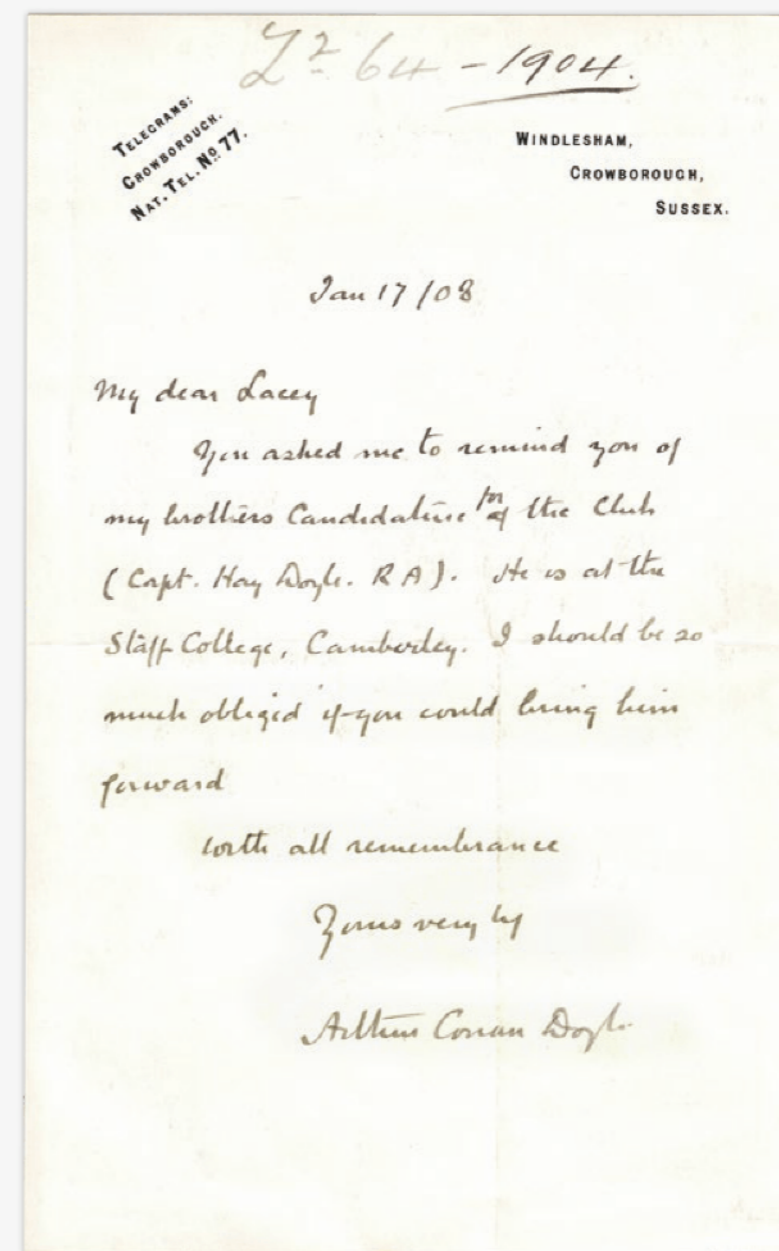 64 - 1904.
TELEGRAMS:
CROWBOROUGH.
NAT. TEL. No. 77.
WINDLESHAM,
CROWBOROUGH,
SUSSEX.
Jan 17/08
My dear Lacey
You asked me to remind you of
my brothers Candidature for the Club
(Capt. Hay Doyle. R A). He is at the
Staff College, Camberley. I should be so
much obliged if you could bring him
forward
with all remembrance
Yours very ty
Arthur Conan Doyle